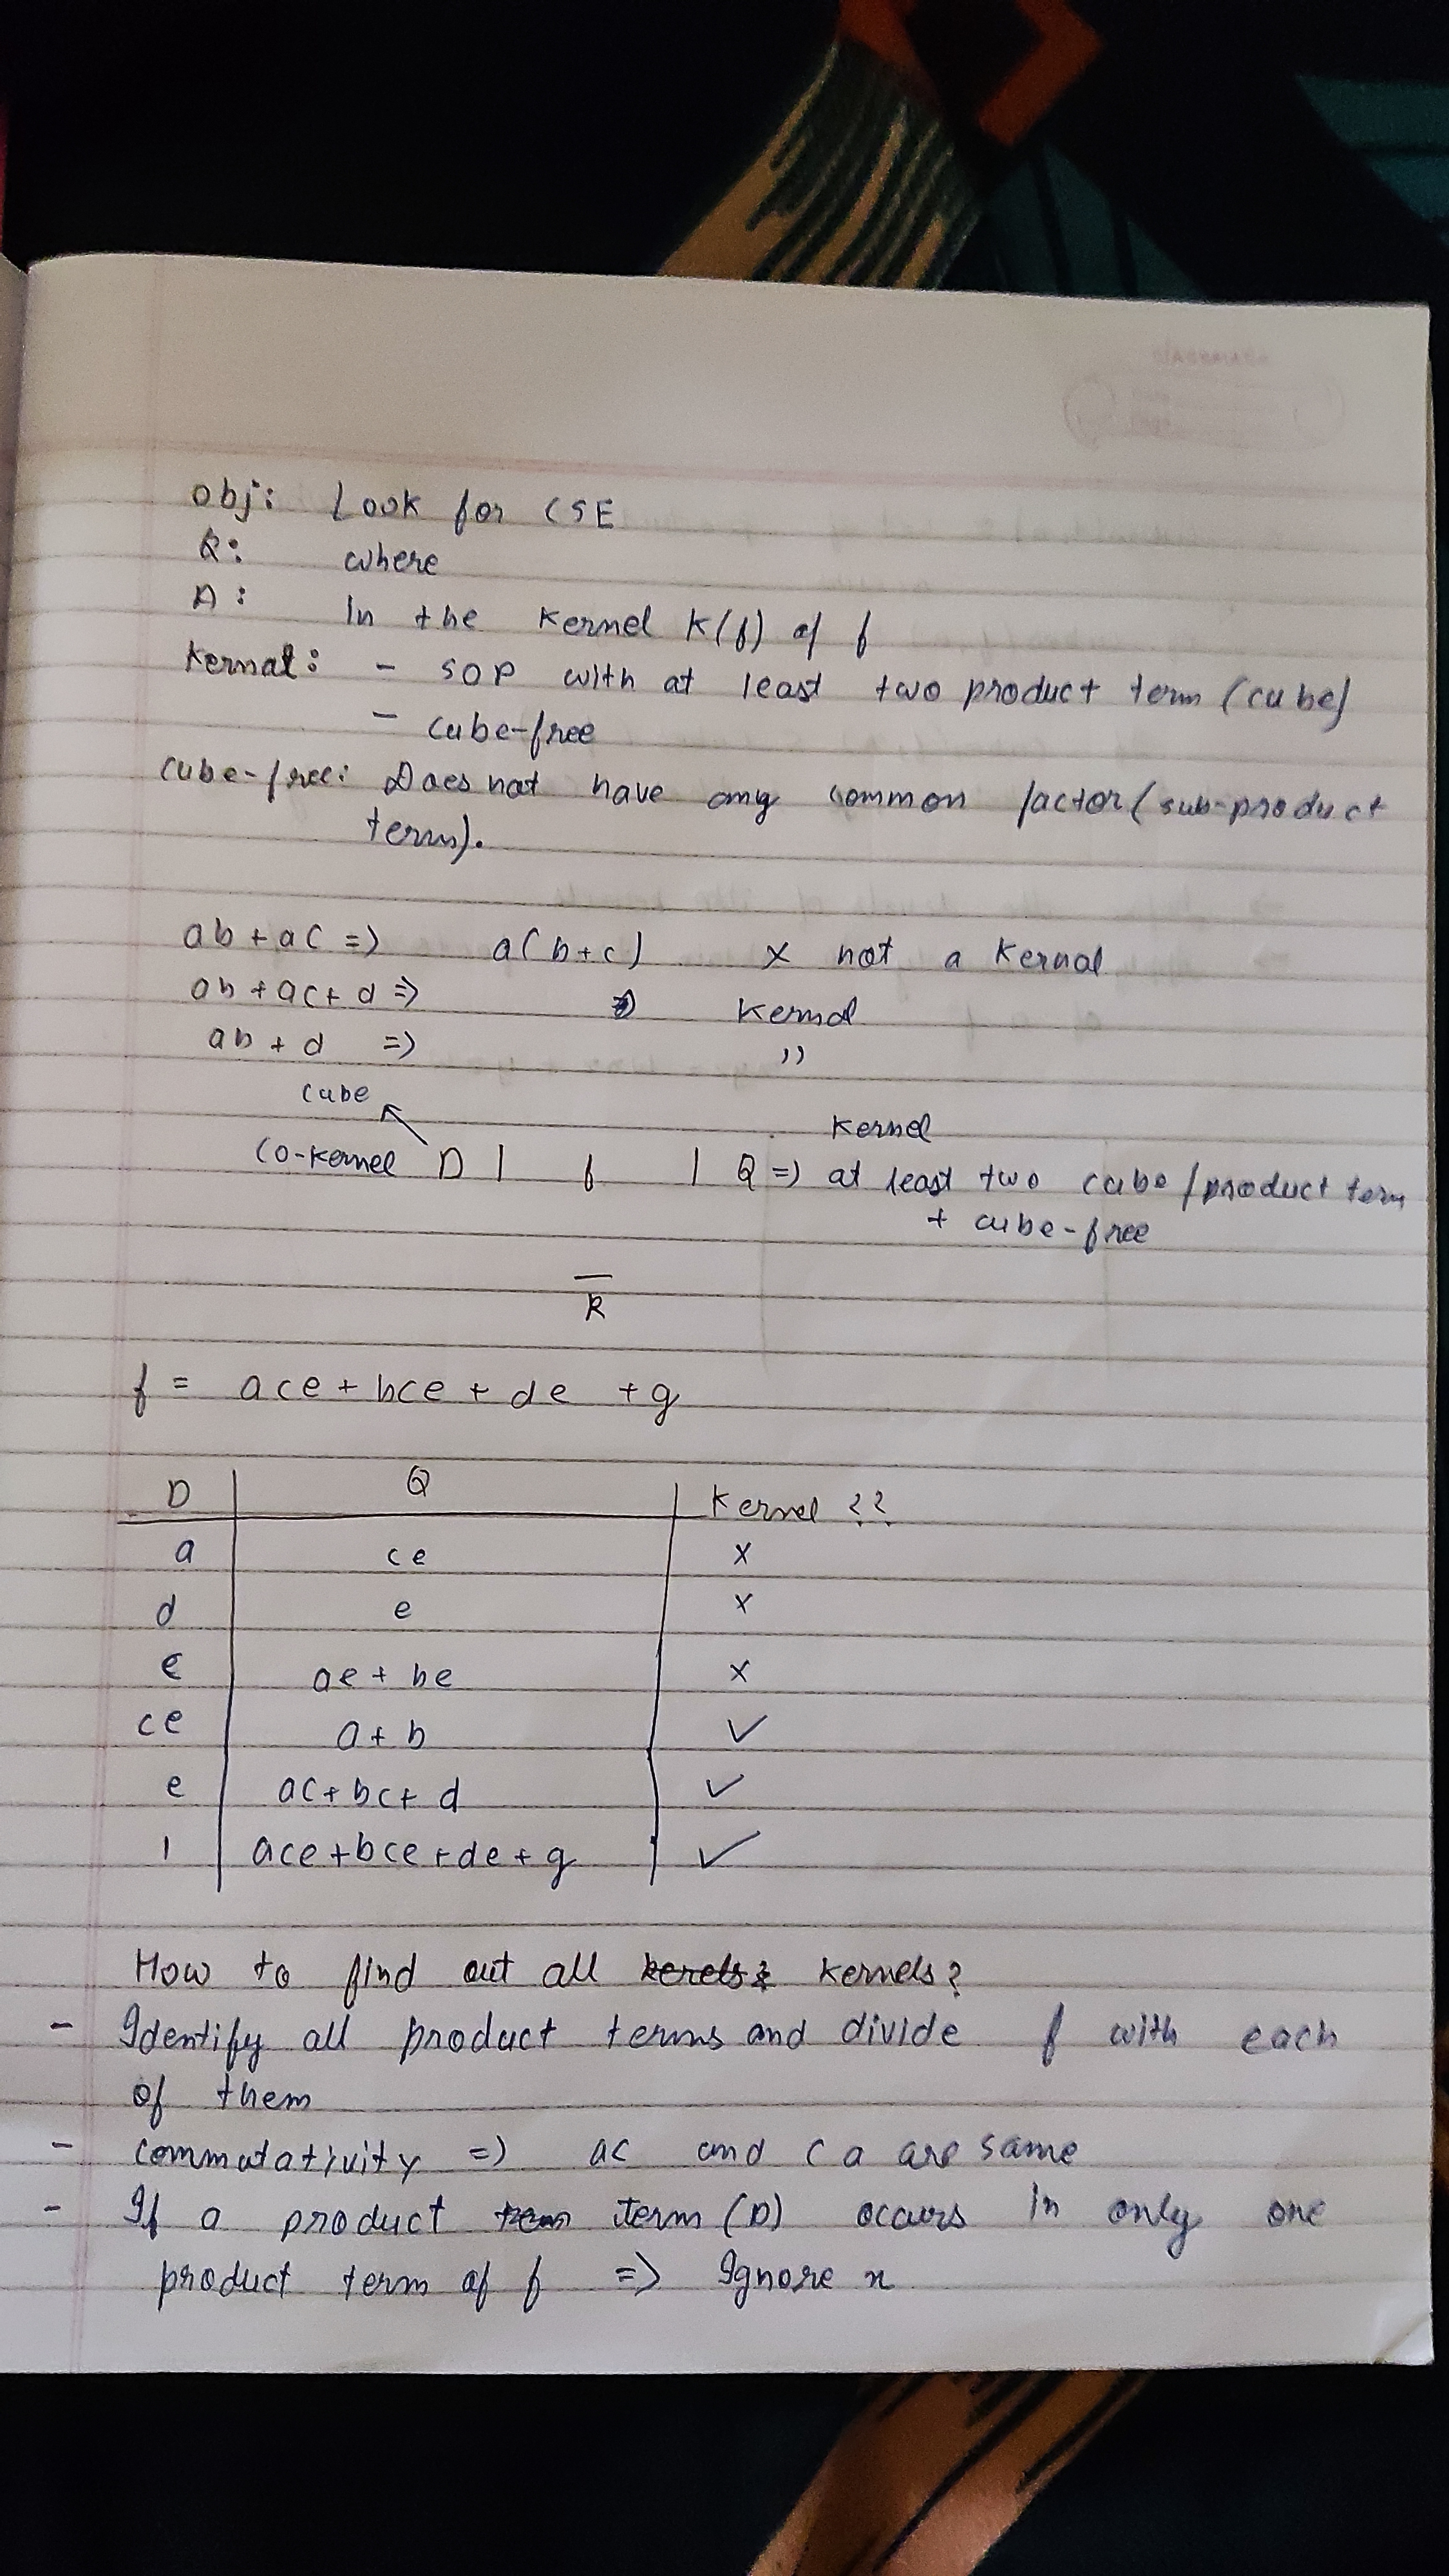 obj: Look for CSE
Q: where
A: In the Kernel K(f) of f
Kernal: - SOP with at least two product term (cube)
- cube-free
cube-free: Does not have any common factor (sub-product
term).
ab + ac => a(b+c) x not a Kernal
ab + ac + d => Kernal
ab + d => ,,
cube
Kernel
Co-kernel D | f | Q => at least two cube/product term
+ cube-free
R
f = ace + bce + de + g
D Q Kernel ??
a ce x
d e x
c ae + be x
ce a + b ✓
e ac + bc + d ✓
1 ace + bce + de + g ✓
How to find out all kerels? kernels?
- Identify all product terms and divide f with each
of them
- commutativity => ac and ca are same
- If a product term (D) occurs in only one
product term of f => Ignore x